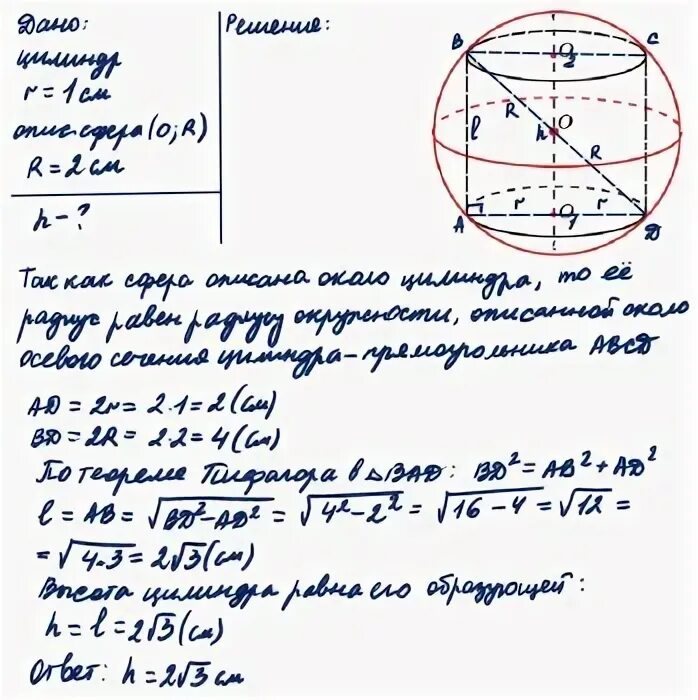 Дано:
цилиндр
r = 1 см
опис. сфера (O; R)
R = 2 см
h - ?
Решение:
B O₂ C
R
l h O
R
r r
A O₁ D
Так как сфера описана около цилиндра, то её
радиус равен радиусу окружности, описанной около
осевого сечения цилиндра - прямоугольника ABCD
AD = 2r = 2·1 = 2 (см)
BD = 2R = 2·2 = 4 (см)
По теореме Пифагора в △BAD: BD² = AB² + AD²
l = AB = √(BD² - AD²) = √(4² - 2²) = √(16 - 4) = √12 =
= √(4·3) = 2√3 (см)
Высота цилиндра равна его образующей:
h = l = 2√3 (см)
Ответ: h = 2√3 см